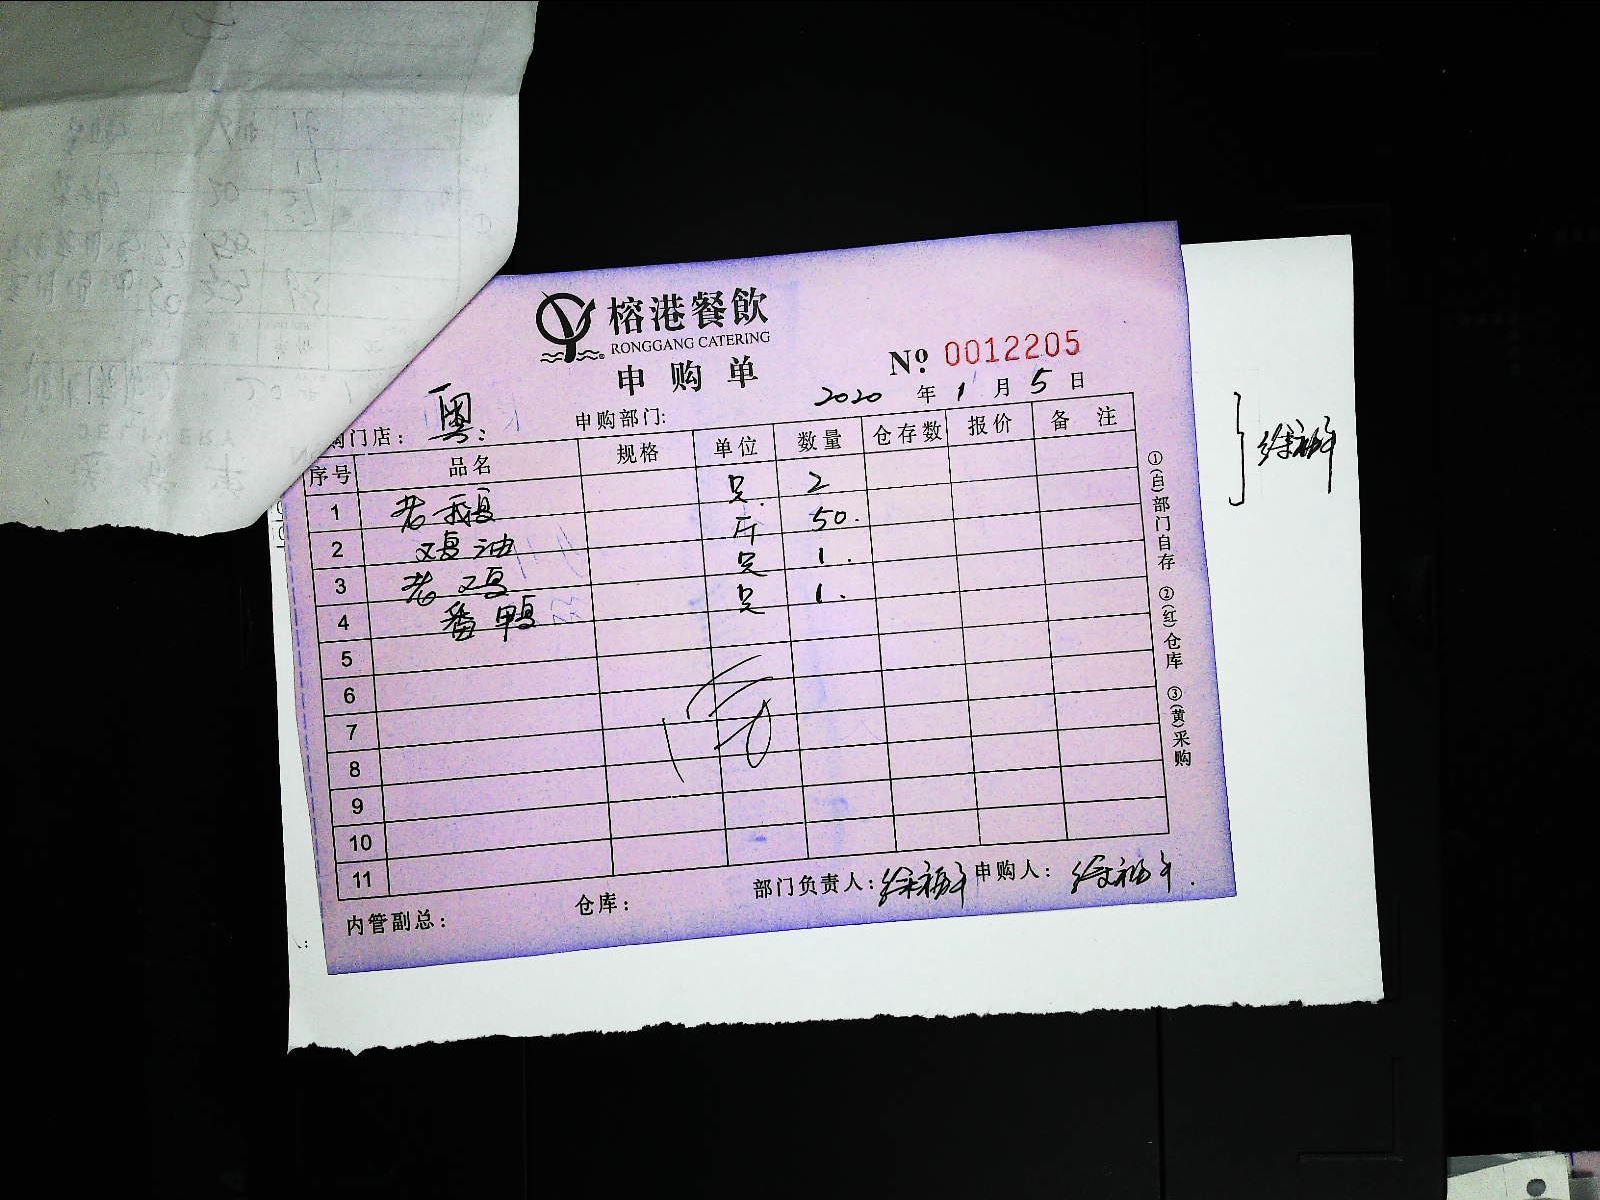 榕港餐飲
RONGGANG CATERING
申购单
№ 0012205
2020 年 1 月 5 日
购门店: 粤: 申购部门:
序号 品名 规格 单位 数量 仓存数 报价 备注
1 老鹅 只 2
2 鸡油 斤 50.
3 老鸡 只 1.
4 番鸭 只 1.
5
6
7
8
9
10
11
①(白)部门自存 ②(红)仓库 ③(黄)采购
内管副总: 仓库: 部门负责人: 申购人: